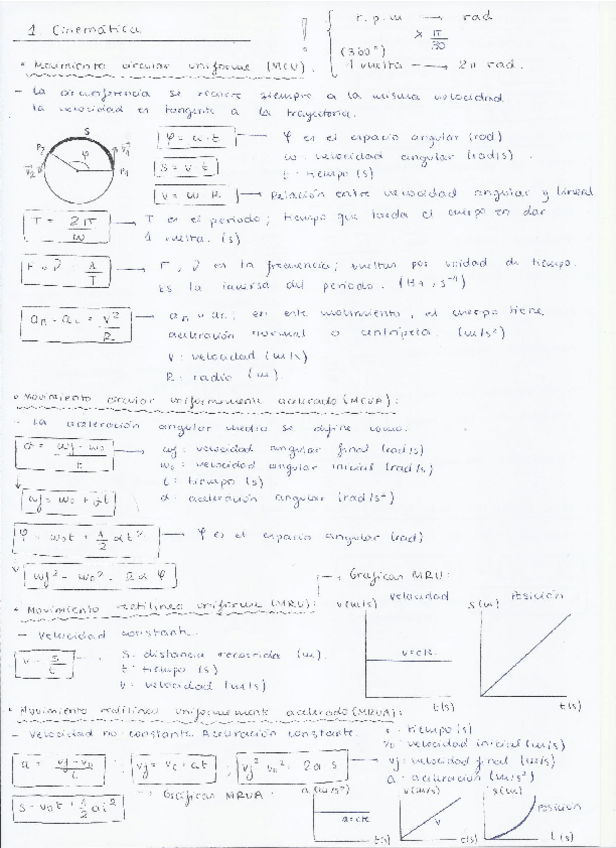 1 Cinemática
! { r.p.m → rad
x π/30
(360°)
1 vuelta → 2π rad.
• Movimiento circular uniforme (MCU).
- La circunferencia se recorre siempre a la misma velocidad
la velocidad es tangente a la trayectoria.
S
P2 φ P1
v2 v1
φ = ω · t — φ es el espacio angular (rad)
ω: velocidad angular (rad/s).
s = v · t
t: tiempo (s)
v = ω · R → Relación entre velocidad angular y lineal
T = 2π/ω → T es el periodo; tiempo que tarda el cuerpo en dar
1 vuelta. (s)
F o ν = 1/T → F, ν es la frecuencia; vueltas por unidad de tiempo.
Es la inversa del periodo. (Hz, s⁻¹)
an = ac = v²/R → an o ac; en este movimiento, el cuerpo tiene
aceleración normal o centrípeta. (m/s²)
v: velocidad (m/s)
R: radio (m).
• Movimiento circular uniformemente acelerado (MCUA):
- La aceleración angular media se define como:
α = ωf - ω0 / t → ωf: velocidad angular final (rad/s)
ω0: velocidad angular inicial (rad/s)
t: tiempo (s)
ωf = ω0 + αt
α: aceleración angular (rad/s²)
φ = ω0t + 1/2 αt² → φ es el espacio angular (rad)
ωf² - ω0² = 2αφ
→ Gráficas MRU:
• Movimiento rectilíneo uniforme (MRU):
v(m/s) velocidad
v=cte.
t(s)
s(m) posición
t(s)
- Velocidad constante.
v = s/t → s: distancia recorrida (m).
t: tiempo (s)
v: velocidad (m/s)
• Movimiento rectilíneo uniformemente acelerado (MRUA):
- Velocidad no constante. Aceleración constante.
t: tiempo (s)
v0: velocidad inicial (m/s)
a = vf - v0 / t ; vf = v0 + at ; vf² - v0² = 2 a s → vf: velocidad final (m/s)
a: aceleración (m/s²)
s = v0t + 1/2 at²
→ Gráficas MRUA:
a(m/s²)
a=cte
t(s)
v(m/s)
v
t(s)
s(m)
posición
t(s)